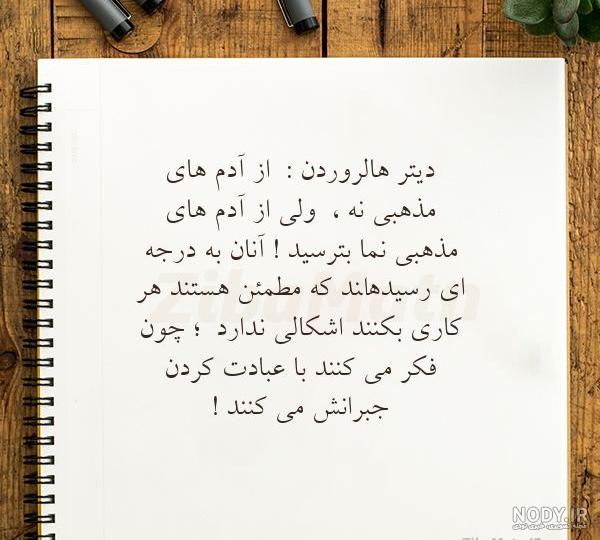 دیتر هالروردن : از آدم های
مذهبی نه ، ولی از آدم های
مذهبی نما بترسید ! آنان به درجه
ای رسیدهاند که مطمئن هستند هر
کاری بکنند اشکالی ندارد ؛ چون
فکر می کنند با عبادت کردن
جبرانش می کنند !
ZibaMatn
NODY.IR